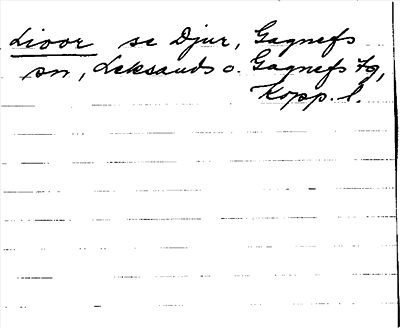 Lioor se Djur, Gagnefs
sn, Leksands o. Gagnefs tg,
Kopp. l.